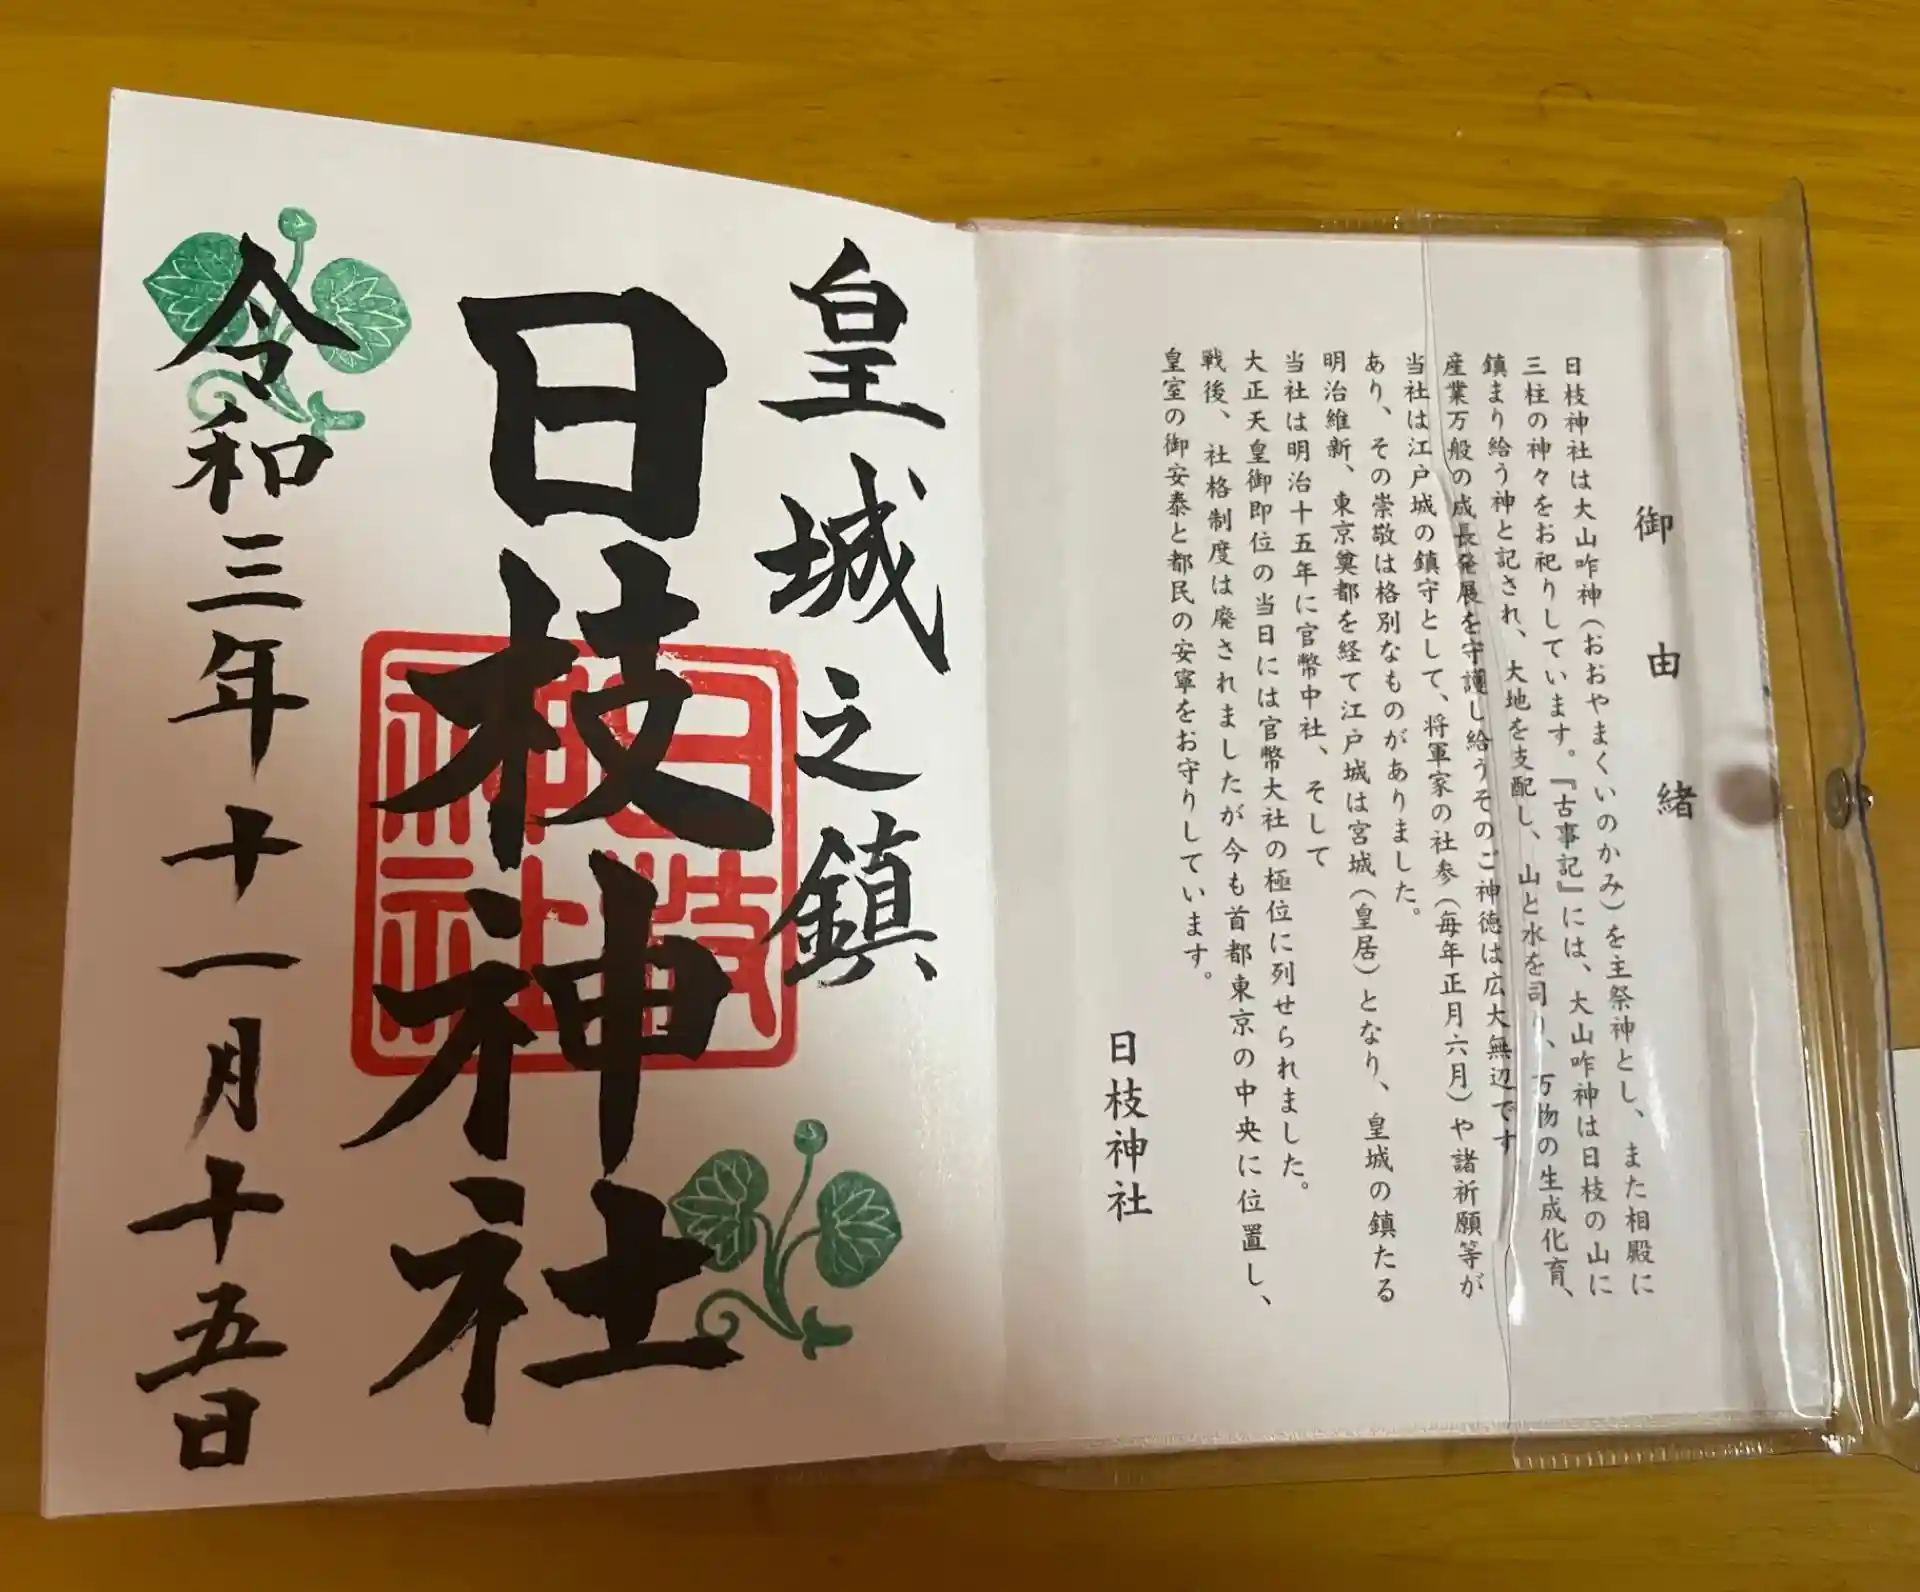 御由緒
日枝神社は大山咋神（おおやまくいのかみ）を主祭神とし、また相殿に
三柱の神々をお祀りしています。『古事記』には、大山咋神は日枝の山に
鎮まり給う神と記され、大地を支配し、山と水を司り、万物の生成化育、
産業万般の成長発展を守護し給うそのご神徳は広大無辺です
当社は江戸城の鎮守として、将軍家の社参（毎年正月六月）や諸祈願等が
あり、その崇敬は格別なものがありました。
明治維新、東京奠都を経て江戸城は宮城（皇居）となり、皇城の鎮たる
当社は明治十五年に官幣中社、そして
大正天皇御即位の当日には官幣大社の極位に列せられました。
戦後、社格制度は廃されましたが今も首都東京の中央に位置し、
皇室の御安泰と都民の安寧をお守りしています。
日枝神社
皇城之鎮
日枝神社
日枝神社
令和三年十一月十五日